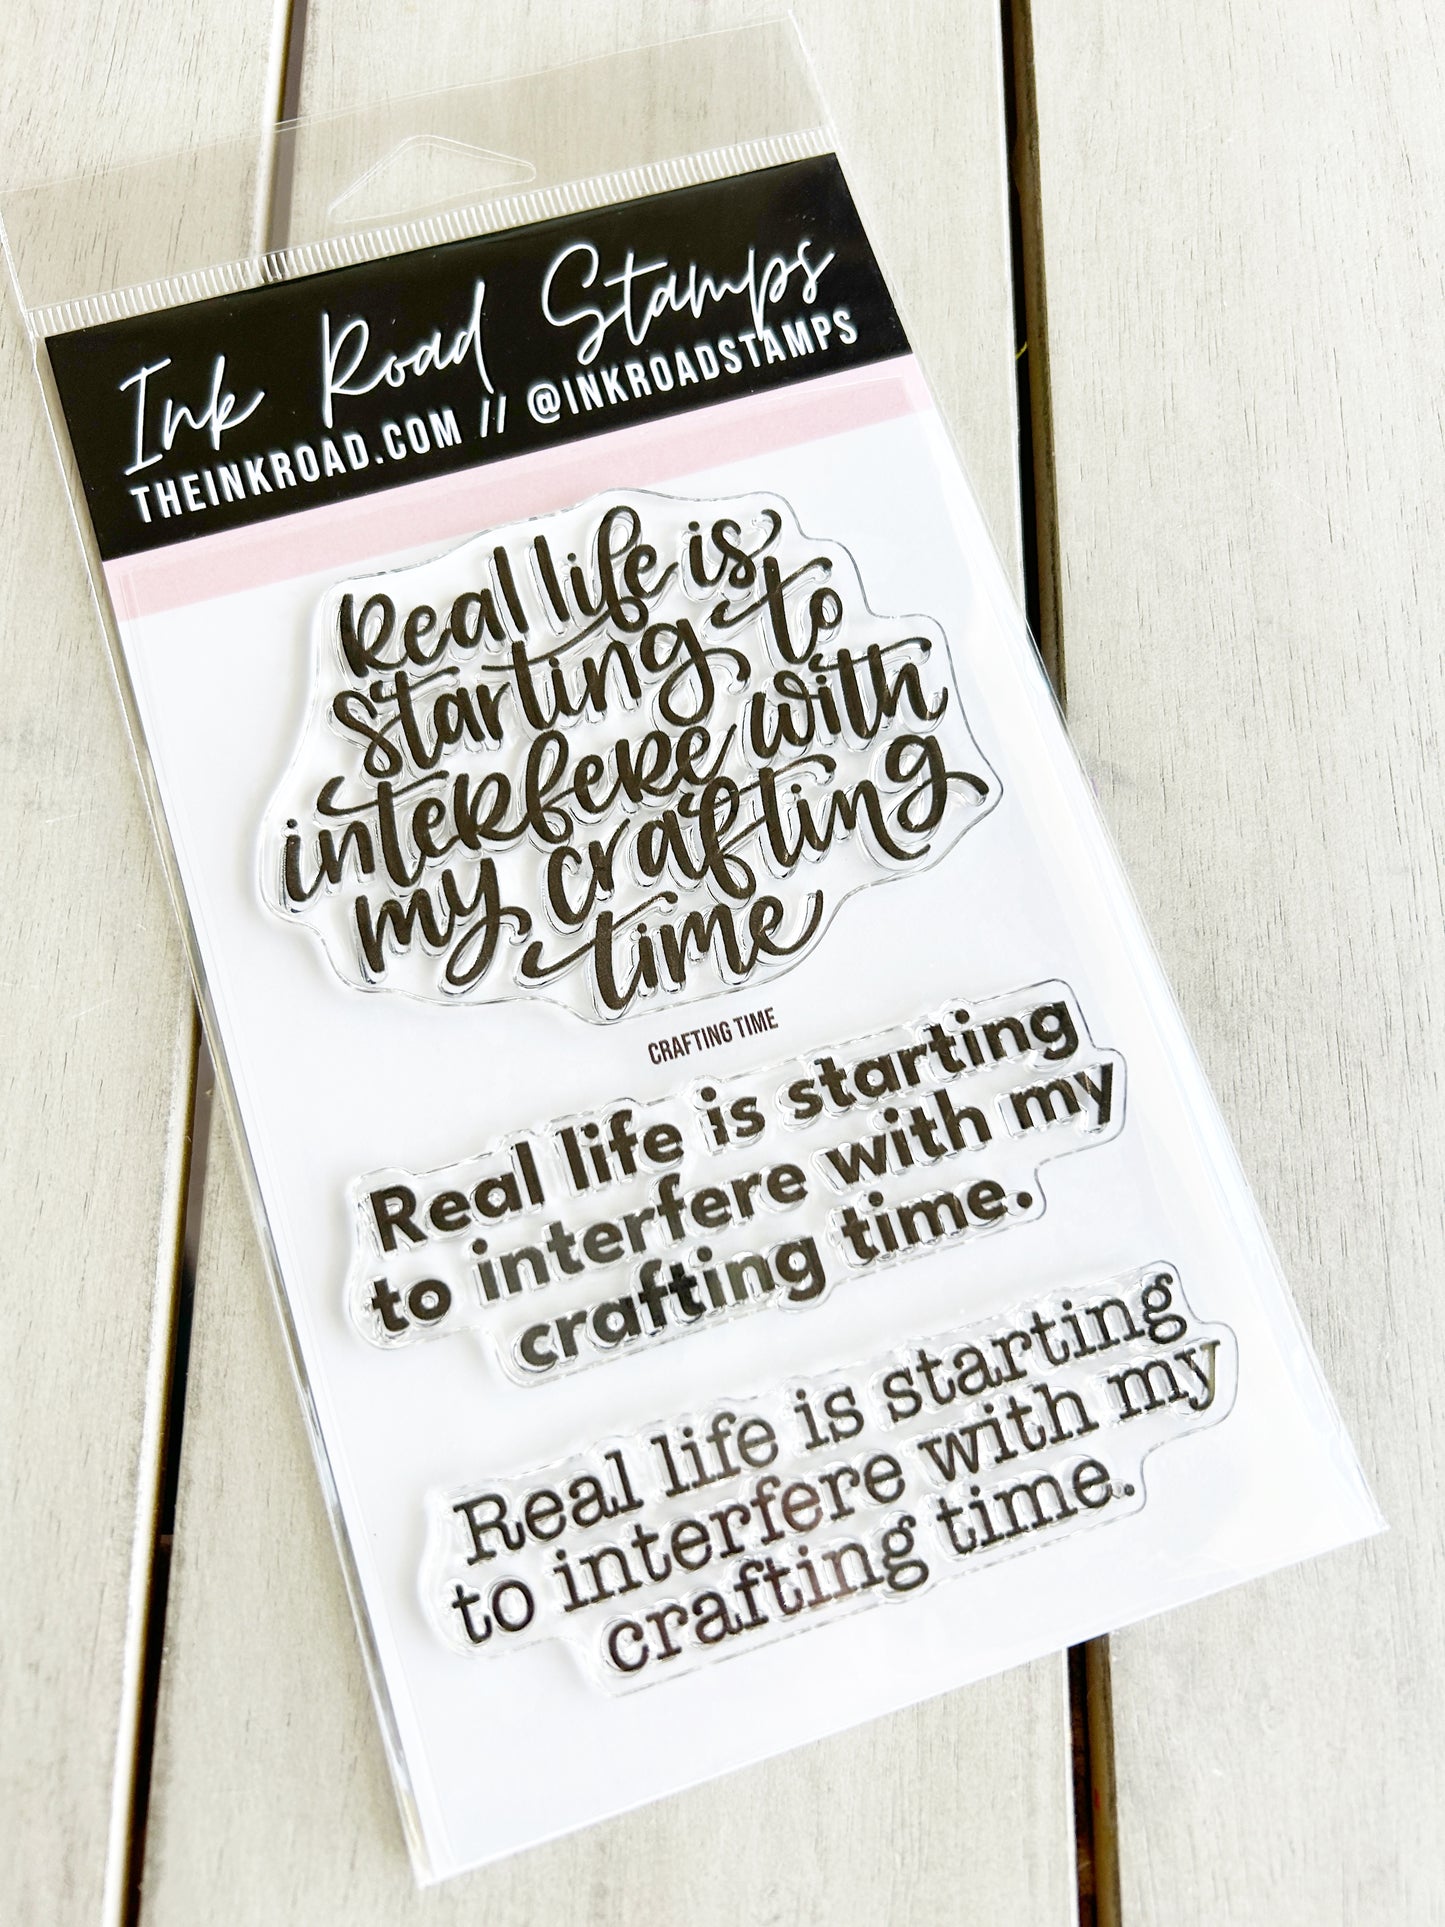 Ink Road Stamps
THEINKROAD.COM // @INKROADSTAMPS
Real life is
starting to
interfere with
my crafting
time
CRAFTING TIME
Real life is starting
to interfere with my
crafting time.
Real life is starting
to interfere with my
crafting time.